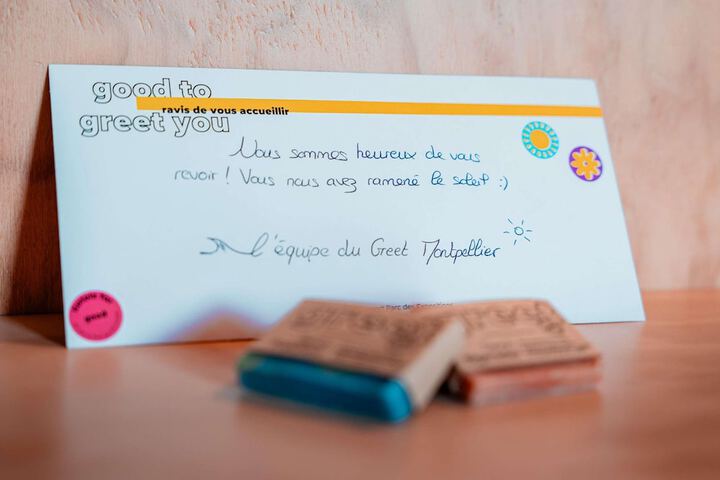 good to
ravis de vous accueillir
greet you
Nous sommes heureux de vous
revoir ! Vous nous avez ramené le soleil :)
l'équipe du Greet Montpellier
good